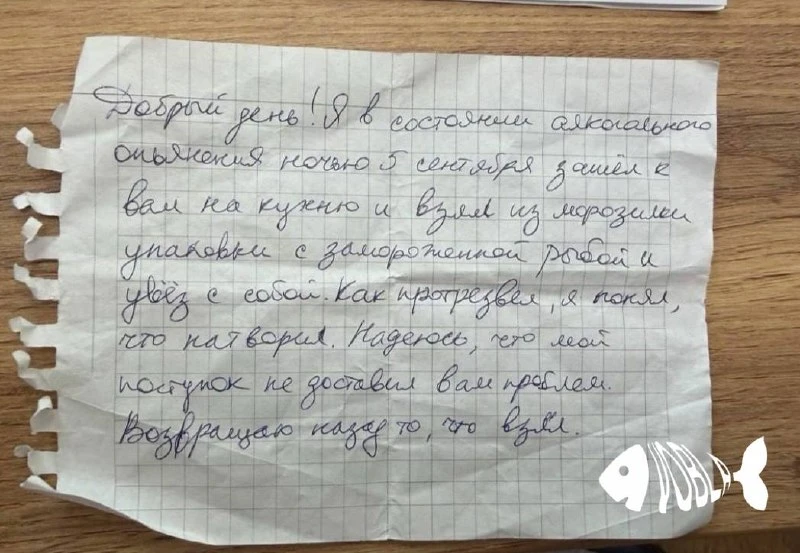 Добрый день! Я в состоянии алкогольного
опьянения ночью 5 сентября зашёл к
вам на кухню и взял из морозилки
упаковки с замороженной рыбой и
увёз с собой. Как протрезвел, я понял,
что натворил. Надеюсь, что мой
поступок не доставил вам проблем.
Возвращаю назад то, что взял.
VOBLA